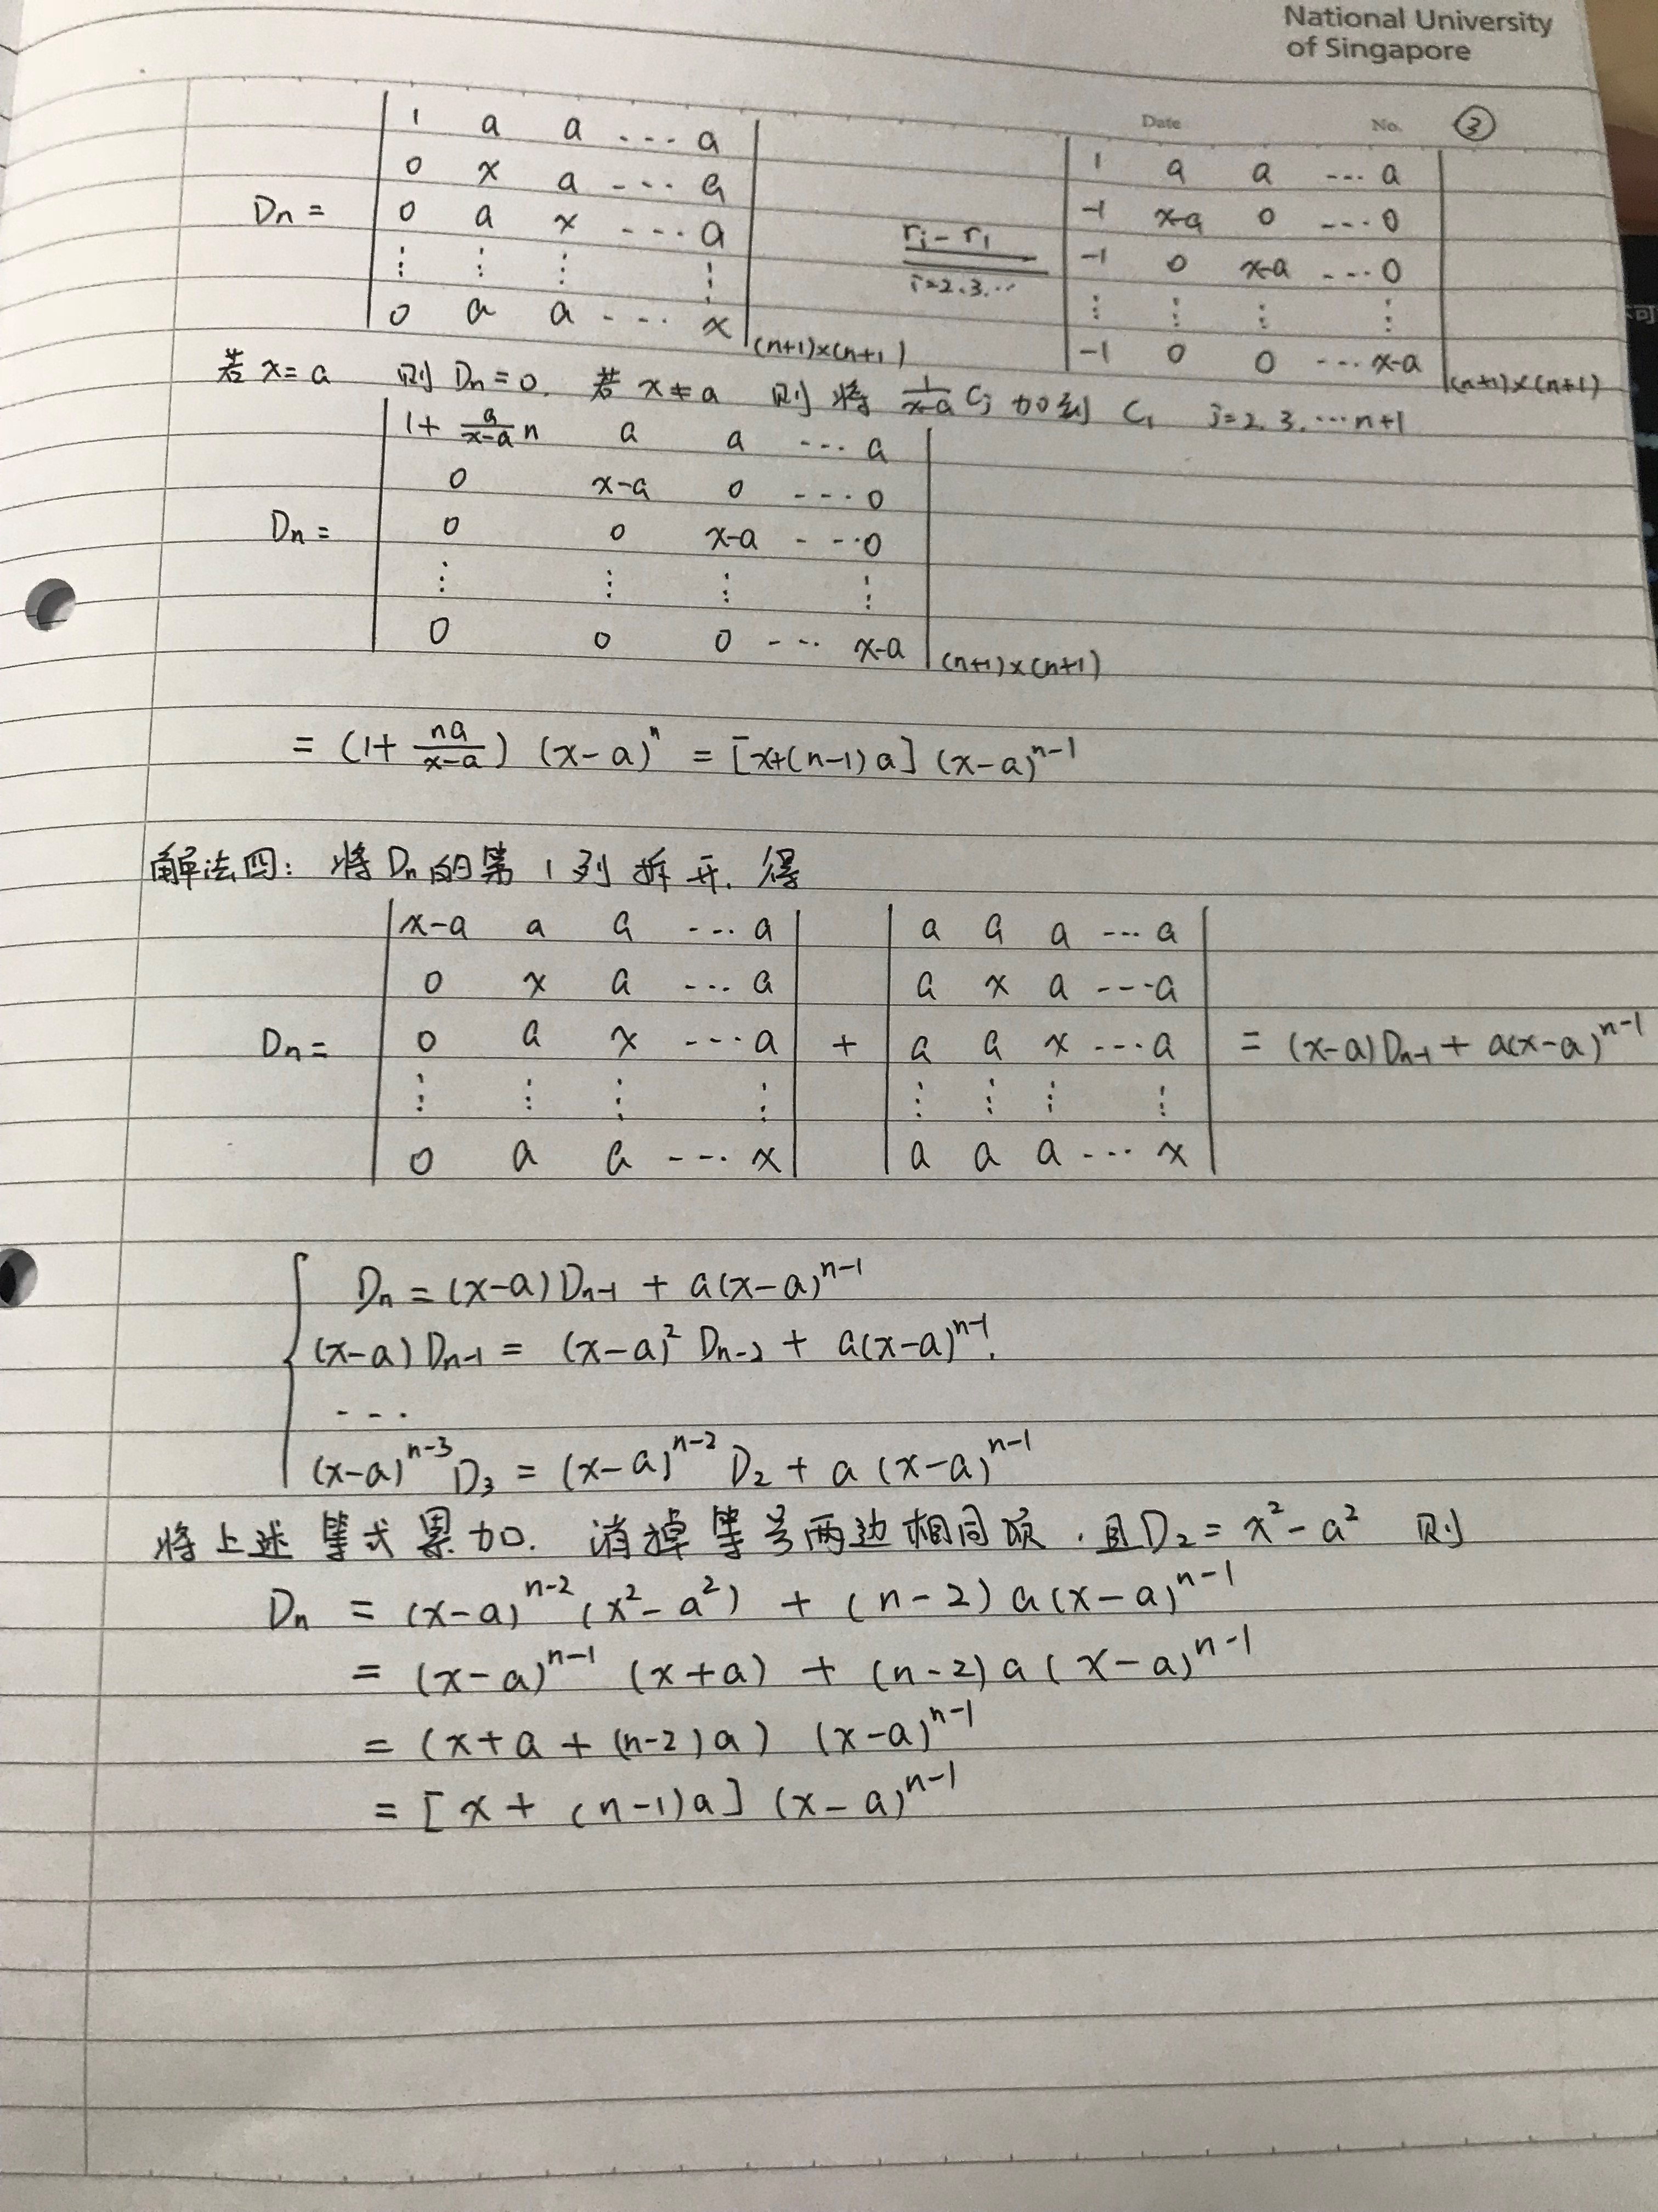 National University
of Singapore
Date No. ③
Dn = | 1 a a ... a | ri - r1 | 1 a a ... a |
| 0 x a ... a | i=2.3... | -1 x-a 0 ... 0 |
| 0 a x ... a | | -1 0 x-a ... 0 |
| ⋮ ⋮ ⋮ ⋮ | | ⋮ ⋮ ⋮ ⋮ |
| 0 a a ... x |(n+1)×(n+1) | -1 0 0 ... x-a |(n+1)×(n+1)
若 x=a 则 Dn=0. 若 x≠a 则 将 1/(x-a) Cj 加到 C1 j=2.3.…n+1
| 1+ a/(x-a) n a a ... a |
| 0 x-a 0 ... 0 |
Dn = | 0 0 x-a ... 0 |
| ⋮ ⋮ ⋮ ⋮ |
| 0 0 0 ... x-a |(n+1)×(n+1)
= (1+ na/(x-a)) (x-a)^n = [x+(n-1)a] (x-a)^(n-1)
解法四: 将Dn的第1列拆开. 得
| x-a a a ... a | | a a a ... a |
| 0 x a ... a | | a x a ... a |
Dn = | 0 a x ... a | + | a a x ... a | = (x-a)Dn-1 + a(x-a)^(n-1)
| ⋮ ⋮ ⋮ ⋮ | | ⋮ ⋮ ⋮ ⋮ |
| 0 a a ... x | | a a a ... x |
Dn = (x-a)Dn-1 + a(x-a)^(n-1)
(x-a)Dn-1 = (x-a)^2 Dn-2 + a(x-a)^(n-1).
...
(x-a)^(n-3) D3 = (x-a)^(n-2) D2 + a(x-a)^(n-1)
将上述等式累加. 消掉等号两边相同项. 且D2 = x²-a² 则
Dn = (x-a)^(n-2) (x²-a²) + (n-2)a(x-a)^(n-1)
= (x-a)^(n-1) (x+a) + (n-2)a(x-a)^(n-1)
= (x+a+(n-2)a) (x-a)^(n-1)
= [x+(n-1)a] (x-a)^(n-1)